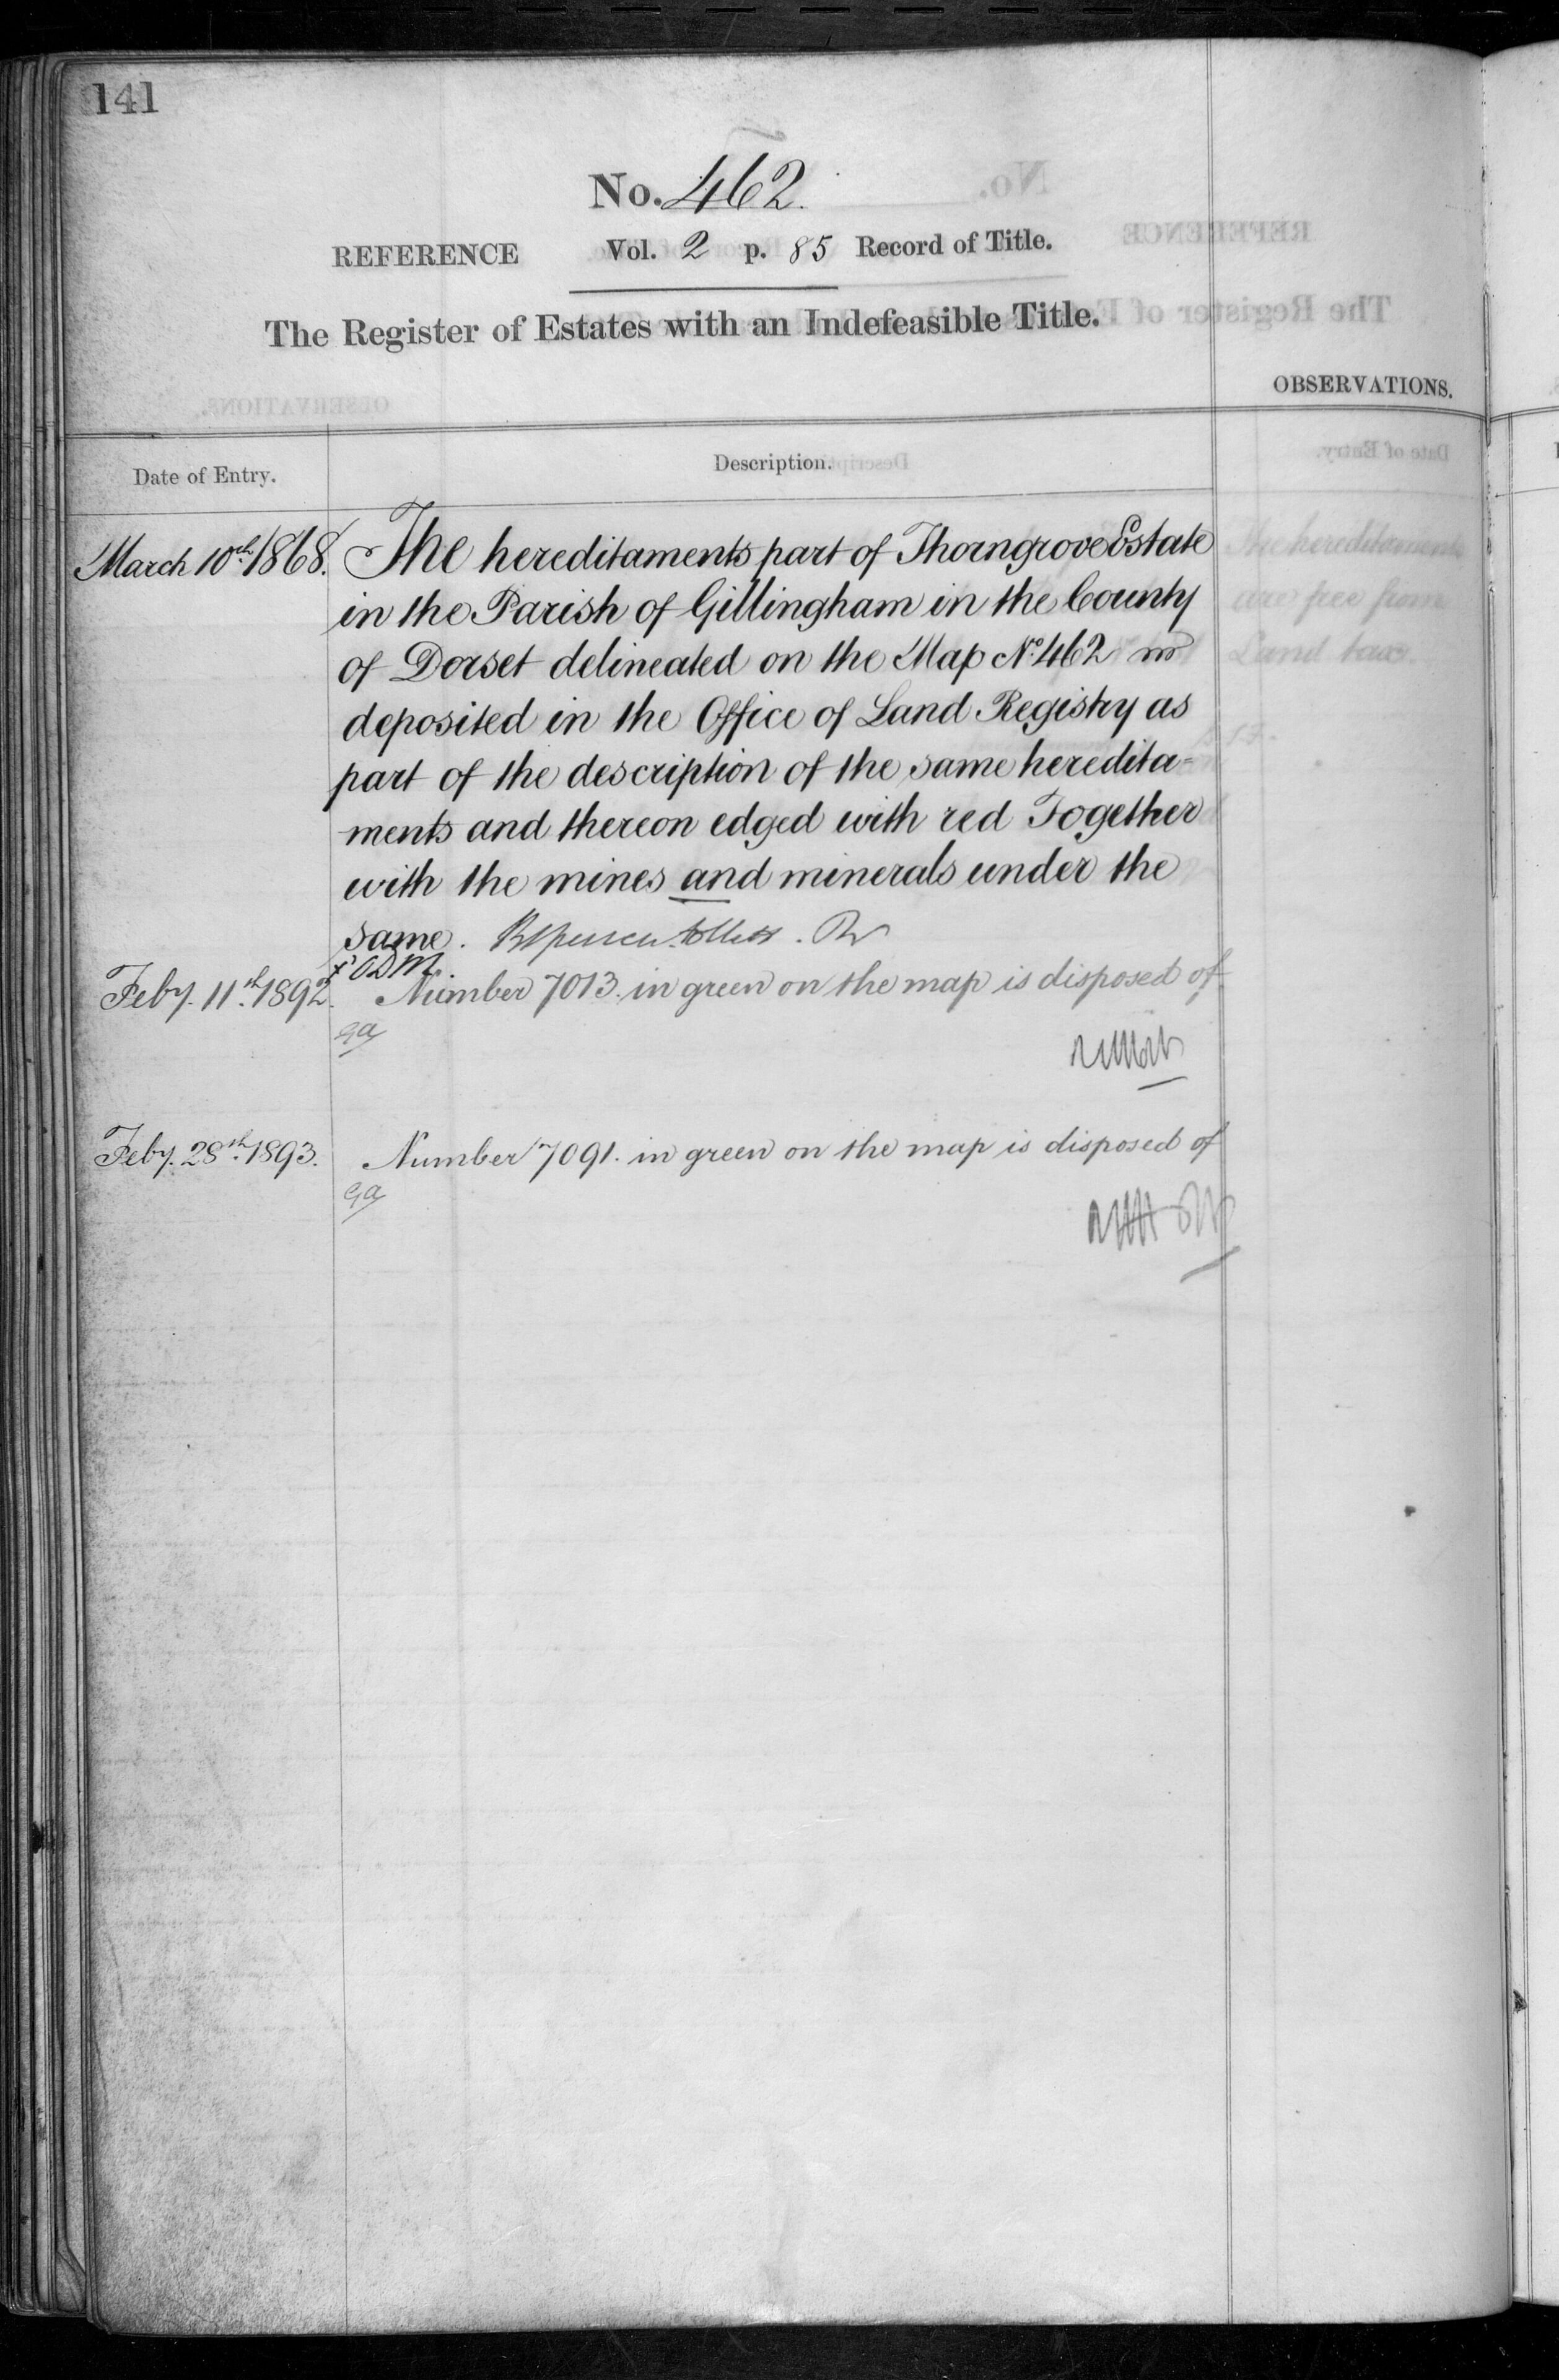 141
No. 462.
REFERENCE Vol. 2 p. 85 Record of Title.
The Register of Estates with an Indefeasible Title.
OBSERVATIONS.
Date of Entry.
Description.
March 10th 1868. The hereditaments part of Thorngrove Estate
in the Parish of Gillingham in the County
of Dorset delineated on the Map No. 462
deposited in the Office of Land Registry as
part of the description of the same heredita-
ments and thereon edged with red Together
with the mines and minerals under the
same.
Feby. 11th 1892. Number 7013. in green on the map is disposed of
Feby. 28th 1893. Number 7091. in green on the map is disposed of
The hereditaments
are free from
Land tax